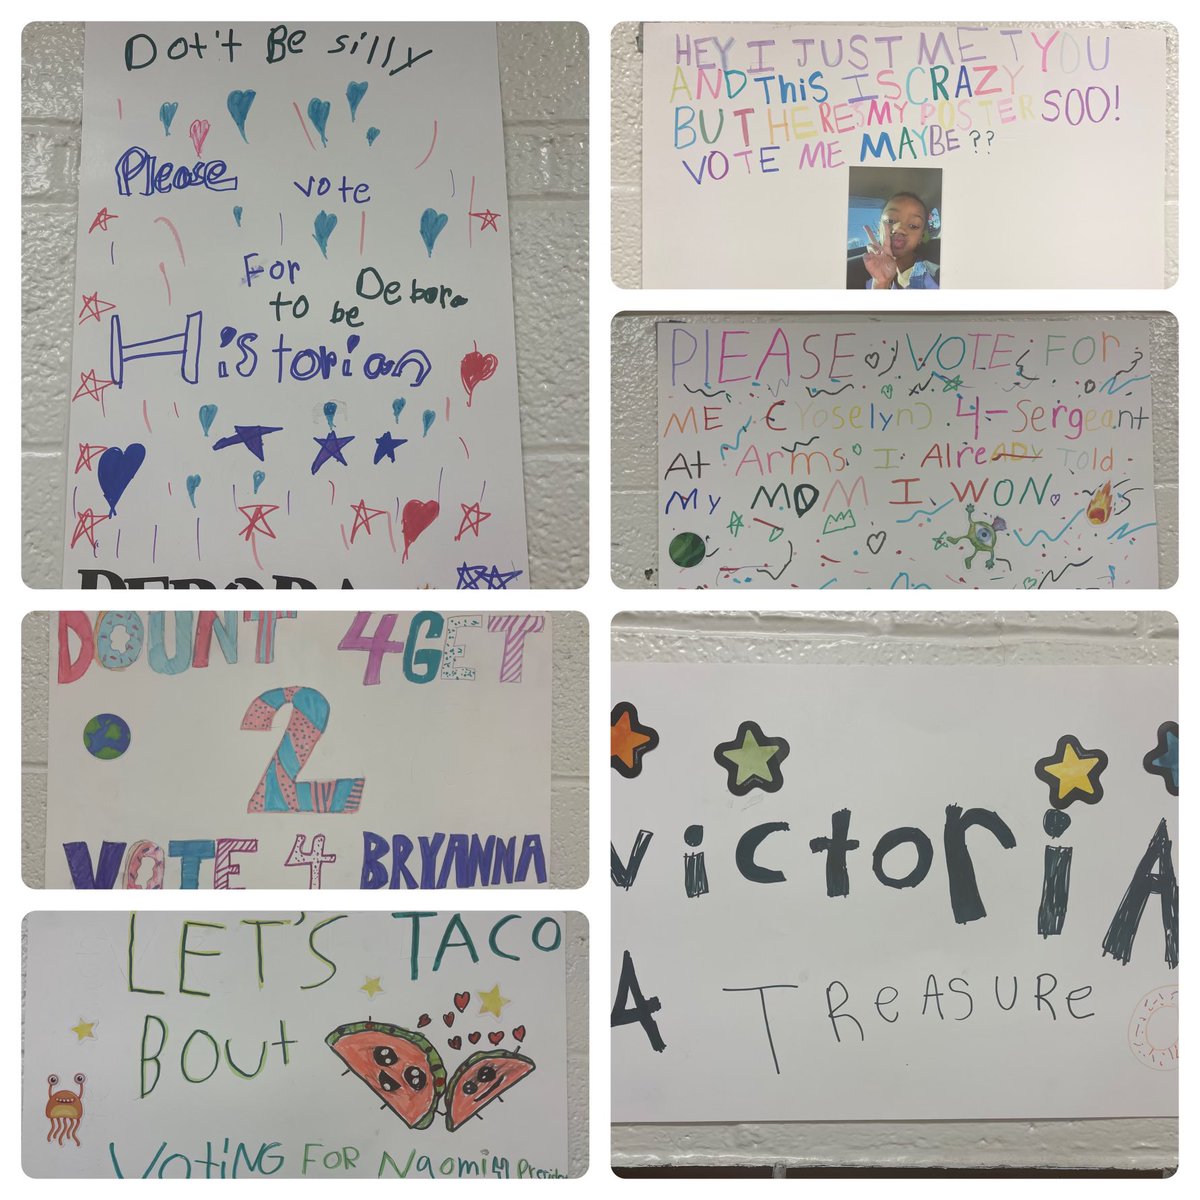 Dot't Be silly
Please vote
For Debora
to be
Historian
DEBORA
HEY I JUST MET YOU
AND THiS IS CRAZY
BUT HERES MY POSTER SOO!
VOTE ME MAYBE??
PlEASE VOTE FOr
ME (Yoselyn) 4-Sergeant
At Arms I AlreADY Told
My MOM I WON.
DOUNT 4GET
2
VOTE 4 BRYANNA
LET'S TACO
BOUt
VOTiNG FOR Naomi 4 Presido
VictoriA
4 TReASURe